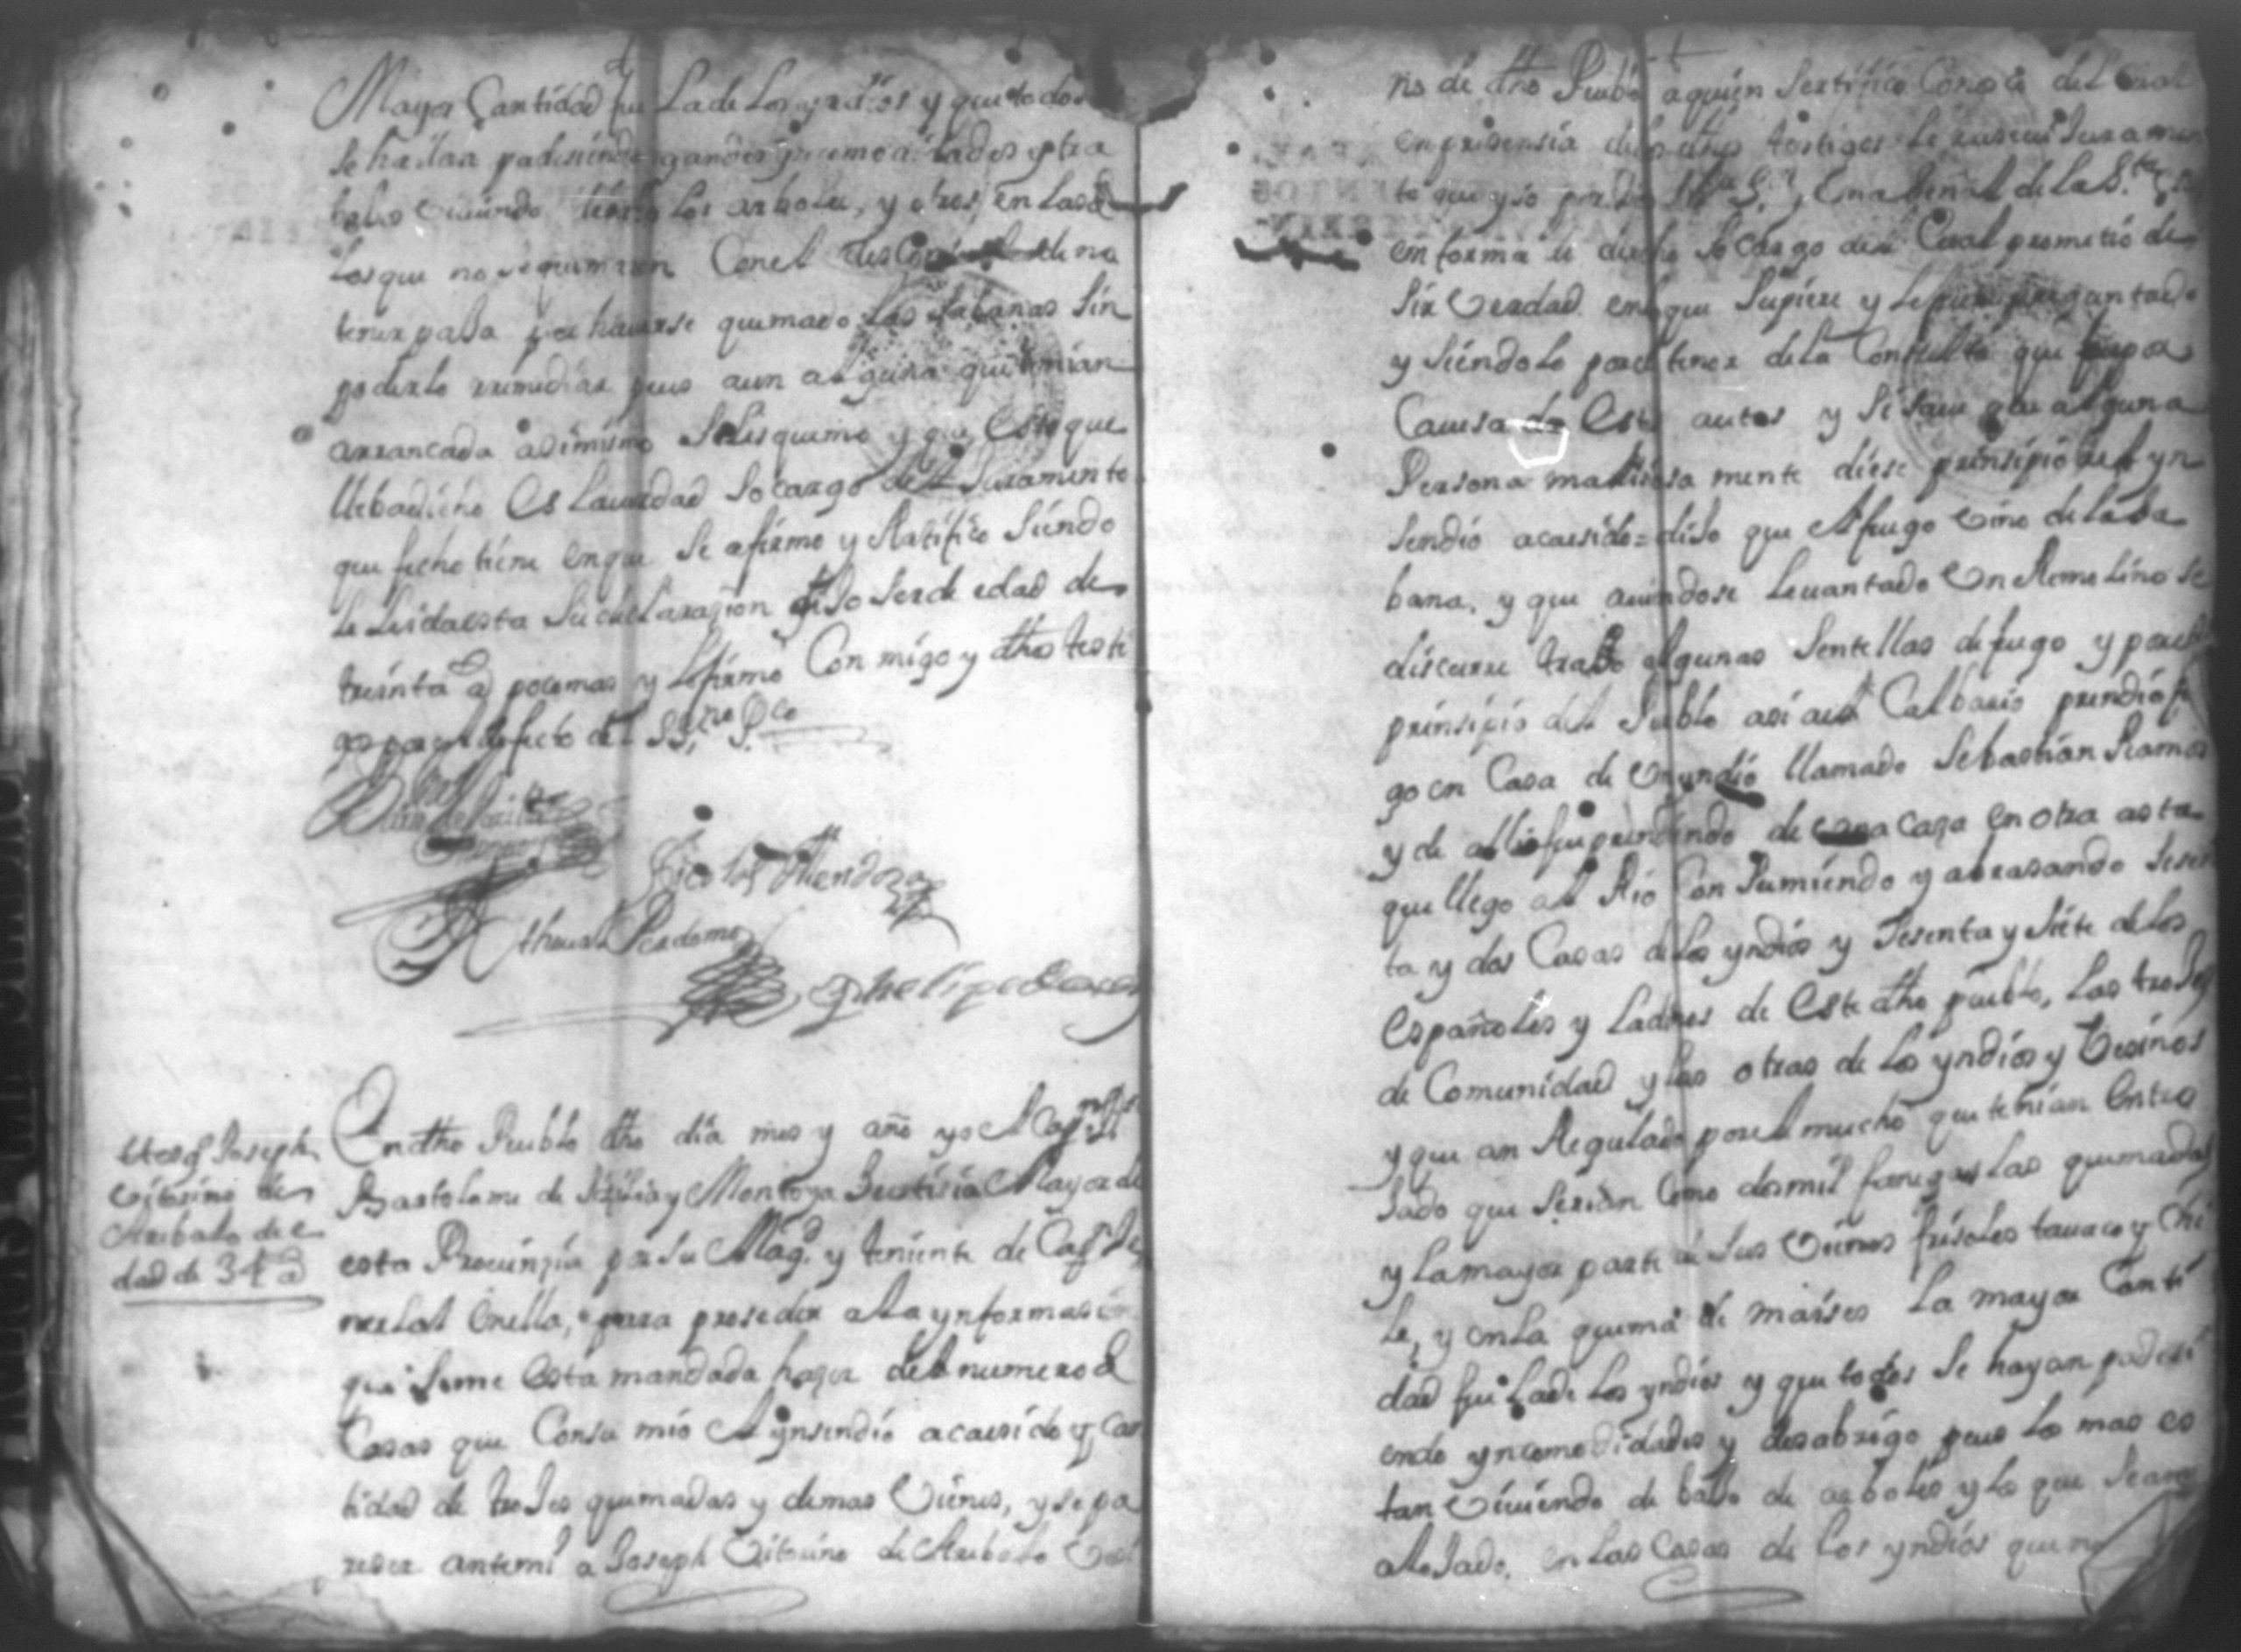 Mayor Cantidad fue La de Los yndios y que todos
Se hallan padesiendo grandes yncomodidades y tra
bajos viuiendo los arboles, y otros en las de
Los que no se quemaron Con el desconsuelo de no
tener palla por hauerse quemado las sabanas Sin
poderlo rremediar pues aun alguna que tenian
arrancada asimismo Se les quemo y que Esto que
lleba dicho Es La uerdad So cargo del Juramento
que fecho tiene en que Se afirmo y Ratifico Siendo
le Leida esta Su declarazion dijo Ser de edad de
treinta a.s poco mas y lo firmo Con migo y dhos testi
gos por defecto de SS.no Pco
Nicolas Mendoza
Athanasio Perdomo
Phelipe
En dho Pueblo dho dia mes y año yo el Cap.n
Bartolome de Montoya Justisia Mayor de
esta Prouinzia por Su Mag.d y teniente de Cap.n Ge
neral En ella, para proseder a la ynformasion
que Se me Esta mandada hazer del numero de
Casas que Consumio el ynsendio acaesido y can
tidad de trojes quemadas y demas Vienes, yse pa
reser ante mi a Joseph Vitorino de Arebalo Vesi
tesg.o Joseph
Vitorino de
Arebalo de e
dad de 34 a.s
no de dho Pueblo a quien Sertifico Conosco del Cual
en presensia de los dhos testigos le reseui Juramen
to que yso por Dios N.ro S.r y Una Señal de la S.ta
en forma de dro So cargo del Cual prometio de
Sir Verdad en que Supiere y Le fuere preguntado
y Siendolo por el tenor de la Consulta que es por
Causa de Estos autos y Si saue que alguna
Persona malisiosa mente diese prinsipio al yn
sendio acaesido = dijo que el fuego Vino de la sa
bana, y que auiendose Leuantado Un Remolino se
discurre trajo algunas Sentellas de fuego y por el
prinsipio del Pueblo asi al Calbario prendio fue
go en Casa de Un yndio llamado Sebastian Ramos
y de alli fue prendiendo de una casa en otra asta
que llego al Rio Con Sumiendo y abrasando Sesen
ta y dos Casas de los yndios y Sesenta y Siete de los
Españoles y Ladinos de Este dho pueblo, Las trojes
de Comunidad y las otras de los yndios y Vesinos
y que an Regulado por el mucho que tenian Entro
jado que Serian Como dos mil fanegas las quemadas
y La mayor parte de Sus Vienes frisoles tauaco y Chi
le, y en la quema de maises La mayor Canti
dad fue La de Los yndios y que todos Se hayan padesi
endo yncomodidades y desabrigo pues los mas es
tan Viuiendo de bajo de arboles y lo que Se an
alojado, en las Casas de los yndios que no